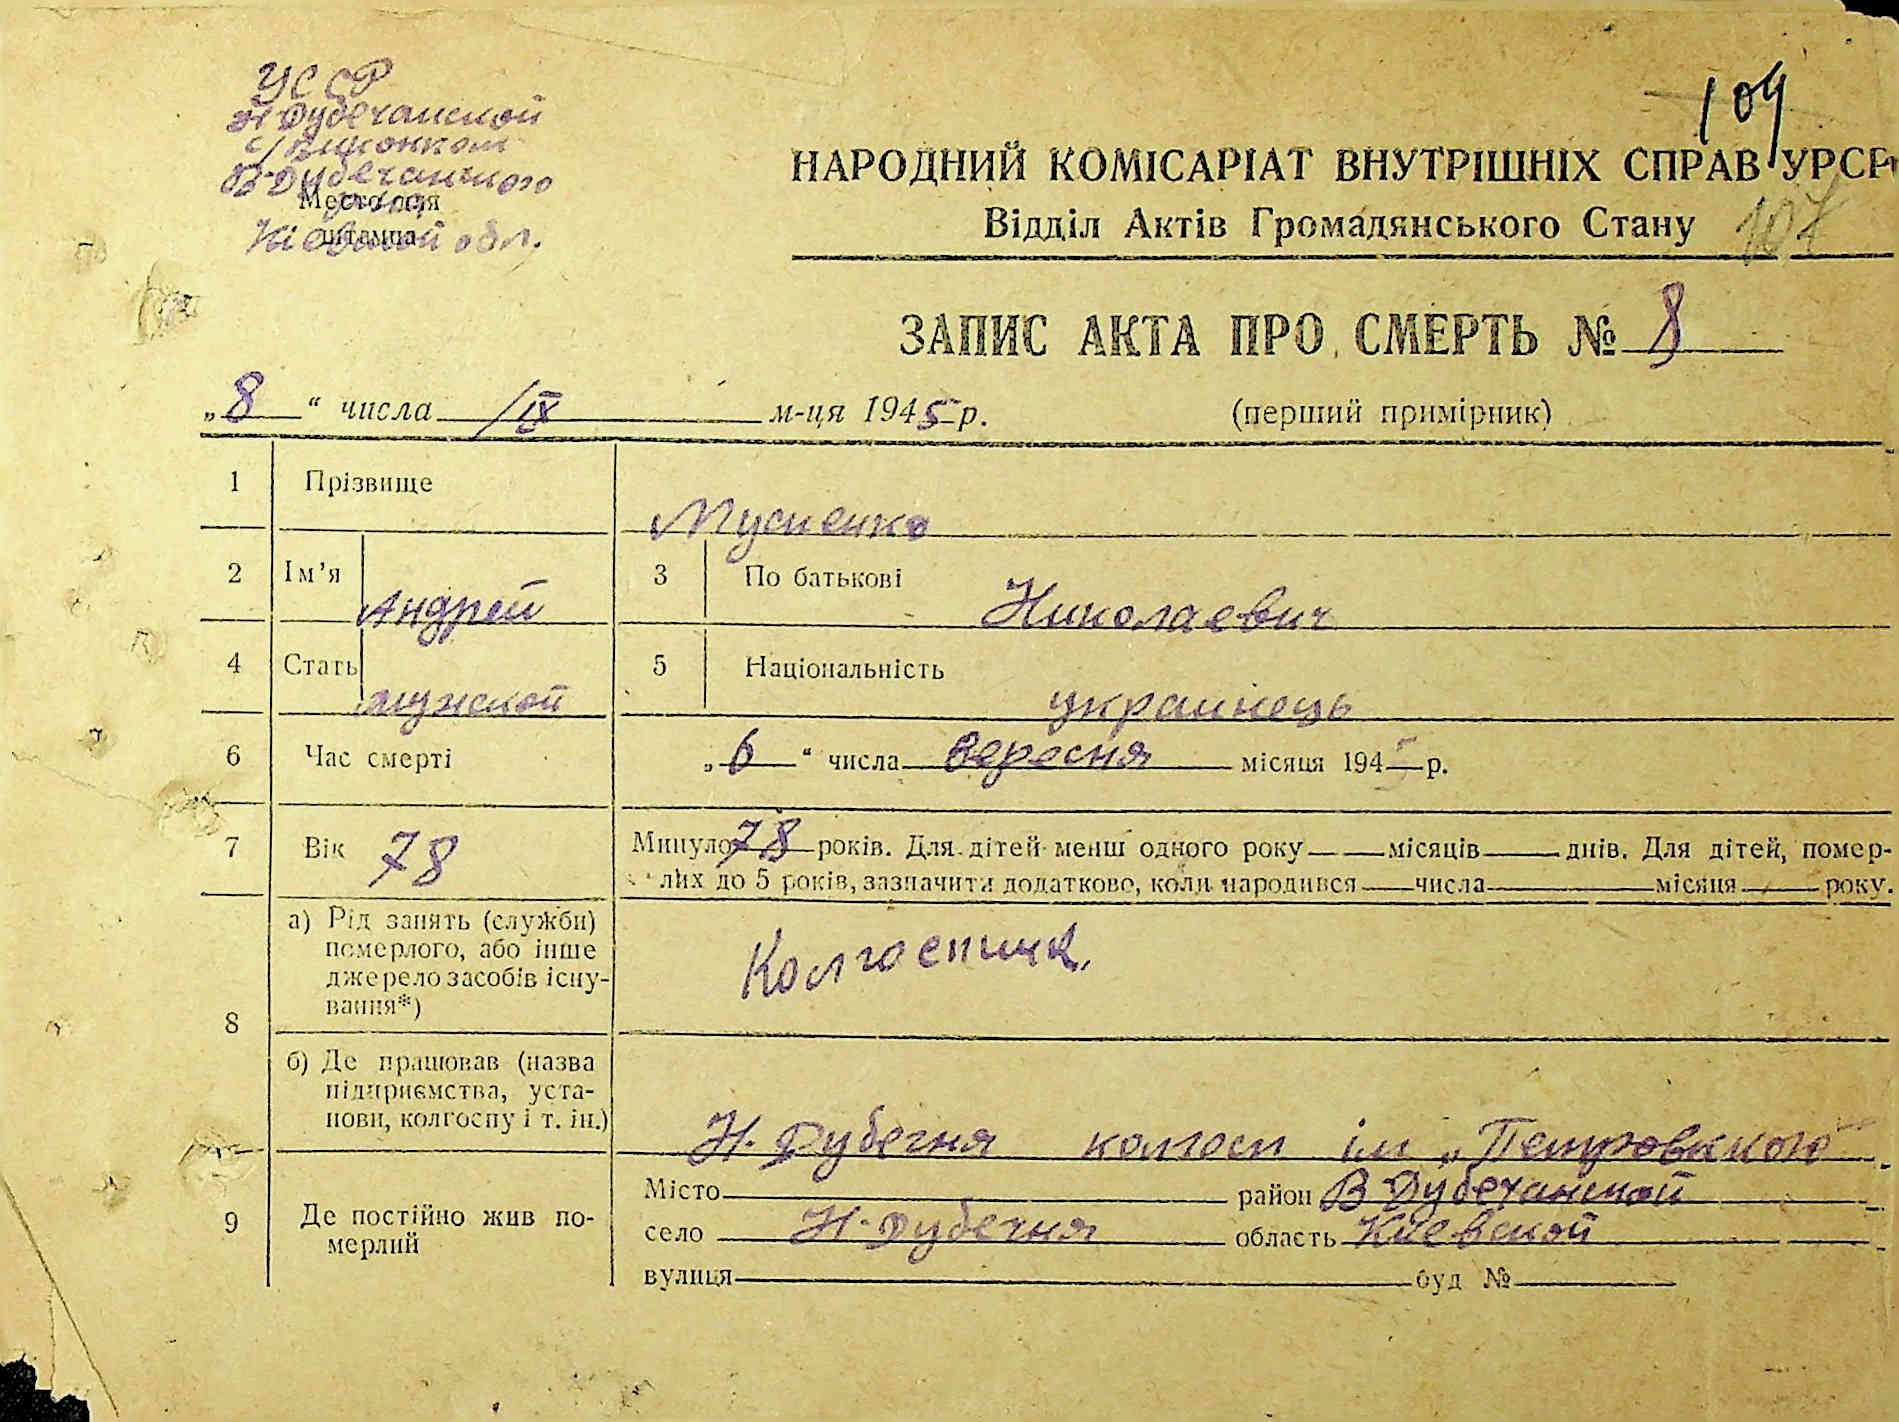 УССР
Н Дубечанской
с/виконком
В-Дубечанского
Место для
штампа
Киевской обл.
109
НАРОДНИЙ КОМІСАРІАТ ВНУТРІШНІХ СПРАВ УРСР
Відділ Актів Громадянського Стану
107
ЗАПИС АКТА ПРО СМЕРТЬ № 8
„8“ числа /IX м-ця 1945 р. (перший примірник)
1 Прізвище Мусиенко
2 Ім'я Андрей 3 По батькові Николаевич
4 Стать мужской 5 Національність украинець
6 Час смерті „6“ числа вересня місяця 1945 р.
7 Вік 78 Минуло 78 років. Для дітей менш одного року місяців днів. Для дітей, помер-
лих до 5 років, зазначити додатково, коли народився числа місяця року.
8 а) Рід занять (служби)
померлого, або інше
джерело засобів існу-
вання*)
Колгоспник.
б) Де працював (назва
підприємства, уста-
нови, колгоспу і т. ін.)
Н. Дубечня колгосп ім „Петровского
9 Де постійно жив по-
мерлий
Місто район В Дубечанской
село Н-Дубечня область Киевской
вулиця буд №